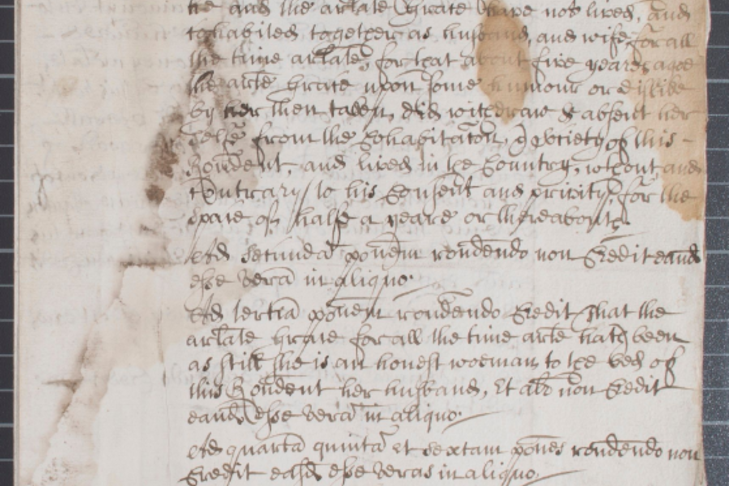 he and the arlate Grace have not lived, and
cohabited together as husband and wife for all
the time arlate, for that about five yeares agoe
the arlte Grace upon some humour or dislike
by her then taken, did witdraw & absent her
selfe from the Cohabitacon, & societie of this
Rondent, and lived in the Country, without and
Contrary to his Consent and privity, for the
space of half a yeare or thereabouts.
Ad secundā ponem rondendo non Credit eand
esse verā in aliquo.
Ad tertiā ponem rondendo Credit That the
arlate Grace for all the time arlte hath been
as still she is an honest woeman, to the bed of
this Rondent her husband, Et aliō non Credit
eand esse verā in aliquo.
Ad quartā quintā et sextam pones rondendo non
Credit easd esse veras in aliquo.